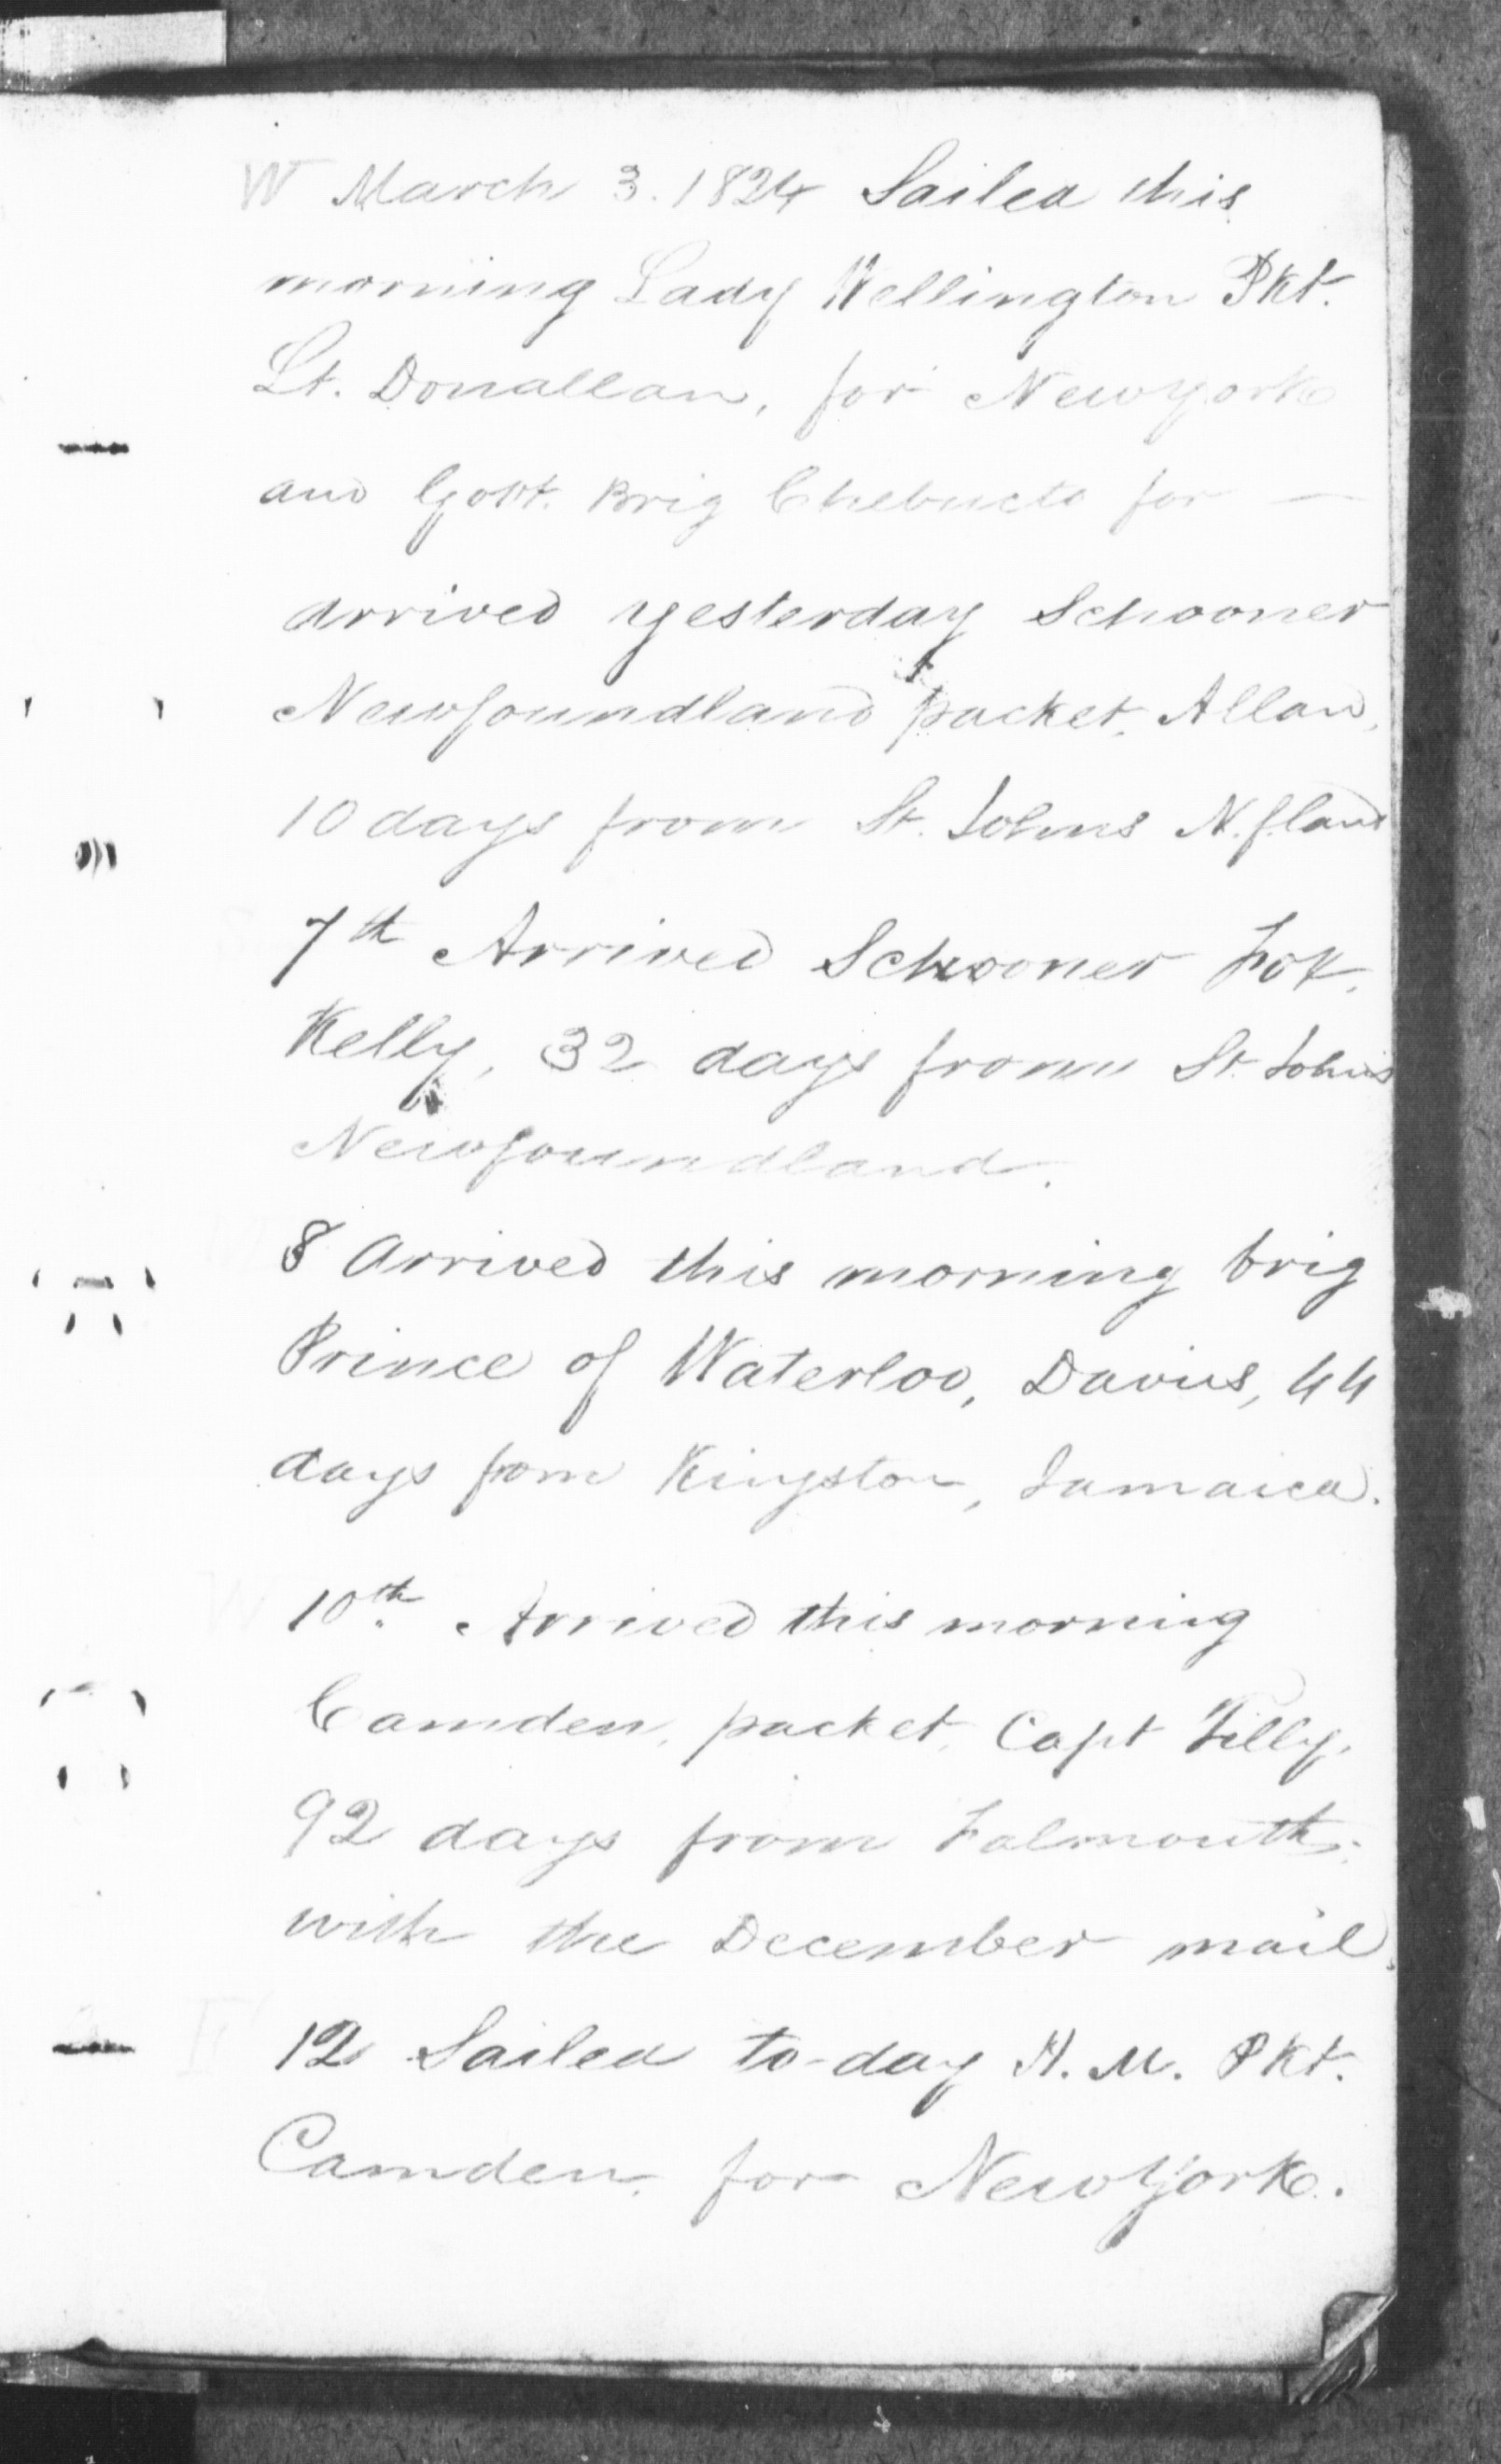 W March 3. 1824 Sailed this
morning Lady Wellington Pkt.
Lt. Donallan, for New York
and Govt. Brig Chebucto for —
arrived yesterday Schooner
Newfoundland packet, Allan,
10 days from St. Johns N.fland
7th Arrived Schooner Fox,
Kelly, 32 days from St. Johns
Newfoundland.
8 Arrived this morning brig
Prince of Waterloo, Davies, 44
days from Kingston, Jamaica.
10th. Arrived this morning
Camden, packet, Capt Tilly,
92 days from Falmouth,
with the December mail.
12 Sailed to-day H. M. Pkt.
Camden for New York.